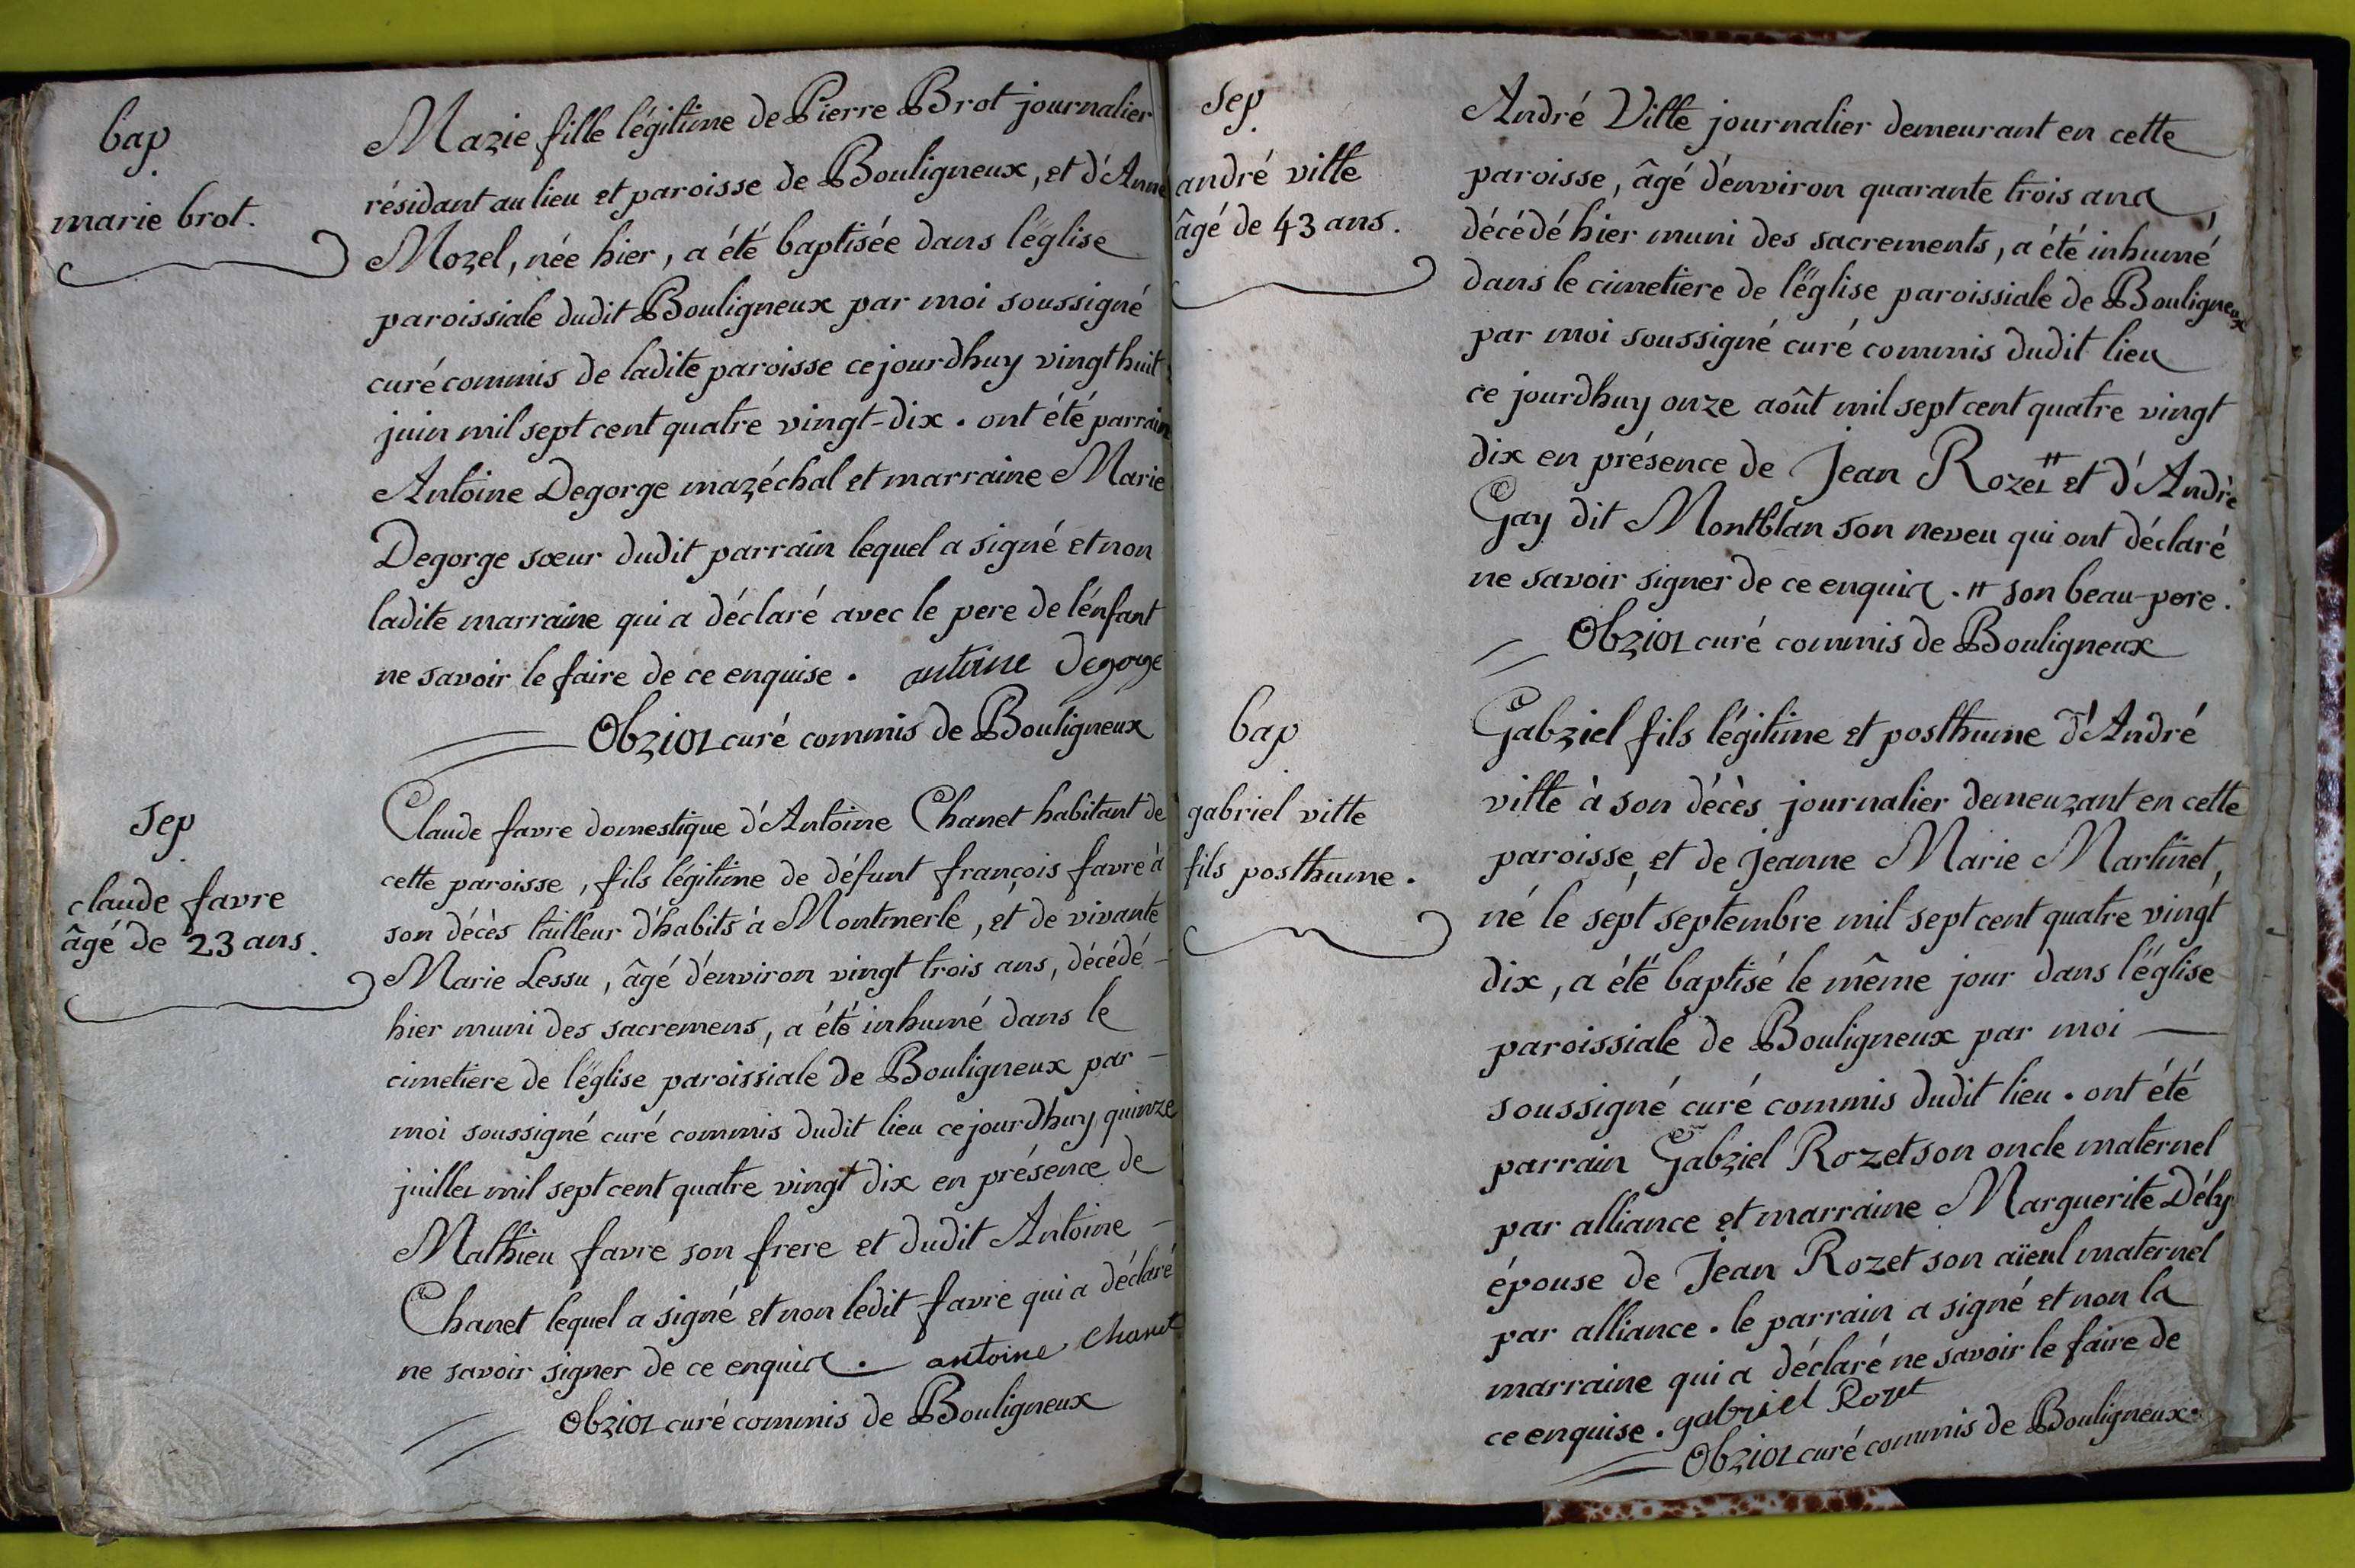 bap
marie brot.
Marie fille légitime de Pierre Brot journalier
résidant au lieu et paroisse de Bouligneux, et d'Anne
Mozel, née hier, a été baptisée dans l'église
paroissiale dudit Bouligneux par moi soussigné
curé commis de ladite paroisse ce jourdhuy vingt huit
juin mil sept cent quatre vingt-dix. ont été parrain
Antoine Degorge maréchal et marraine Marie
Degorge sœur dudit parrain lequel a signé et non
ladite marraine qui a déclaré avec le pere de l'enfant
ne savoir le faire de ce enquise. antoine Degorge
Obriot curé commis de Bouligneux
sep
claude favre
âgé de 23 ans.
Claude favre domestique d'Antoine Chanet habitant de
cette paroisse, fils légitime de défunt françois favre à
son décès tailleur d'habits à Montmerle, et de vivante
Marie Lessu, âgé d'environ vingt trois ans, décédé -
hier muni des sacremens, a été inhumé dans le
cimetiere de l'église paroissiale de Bouligneux par -
moi soussigné curé commis dudit lieu ce jourdhuy quinze
juillet mil sept cent quatre vingt dix en présence de
Mathieu favre son frere et dudit Antoine -
Chanet lequel a signé et non ledit favre qui a déclaré
ne savoir signer de ce enquis. antoine Chanet
Obriot curé commis de Bouligneux
sep
andré vitte
âgé de 43 ans.
André Vitte journalier demeurant en cette
paroisse, âgé d'environ quarante trois ans,
décédé hier muni des sacrements, a été inhumé
dans le cimetiere de l'église paroissiale de Bouligneux
par moi soussigné curé commis dudit lieu
ce jourdhuy onze août mil sept cent quatre vingt
dix en présence de Jean Rozet # et d'André
Gay dit Montblan son neveu qui ont déclaré
ne savoir signer de ce enquis. # son beau-pere.
Obriot curé commis de Bouligneux
bap
gabriel vitte
fils posthume.
Gabriel fils légitime et posthume d'André
vitte à son décès journalier demeurant en cette
paroisse, et de Jeanne Marie Martinet,
né le sept septembre mil sept cent quatre vingt
dix, a été baptisé le même jour dans l'église
paroissiale de Bouligneux par moi —
soussigné curé commis dudit lieu. ont été
parrain Gabriel Rozet son oncle maternel
par alliance et marraine Marguerite Dély
épouse de Jean Rozet son aïeul maternel
par alliance. le parrain a signé et non la
marraine qui a déclaré ne savoir le faire de
ce enquise. gabriel Rozet
Obriot curé commis de Bouligneux.